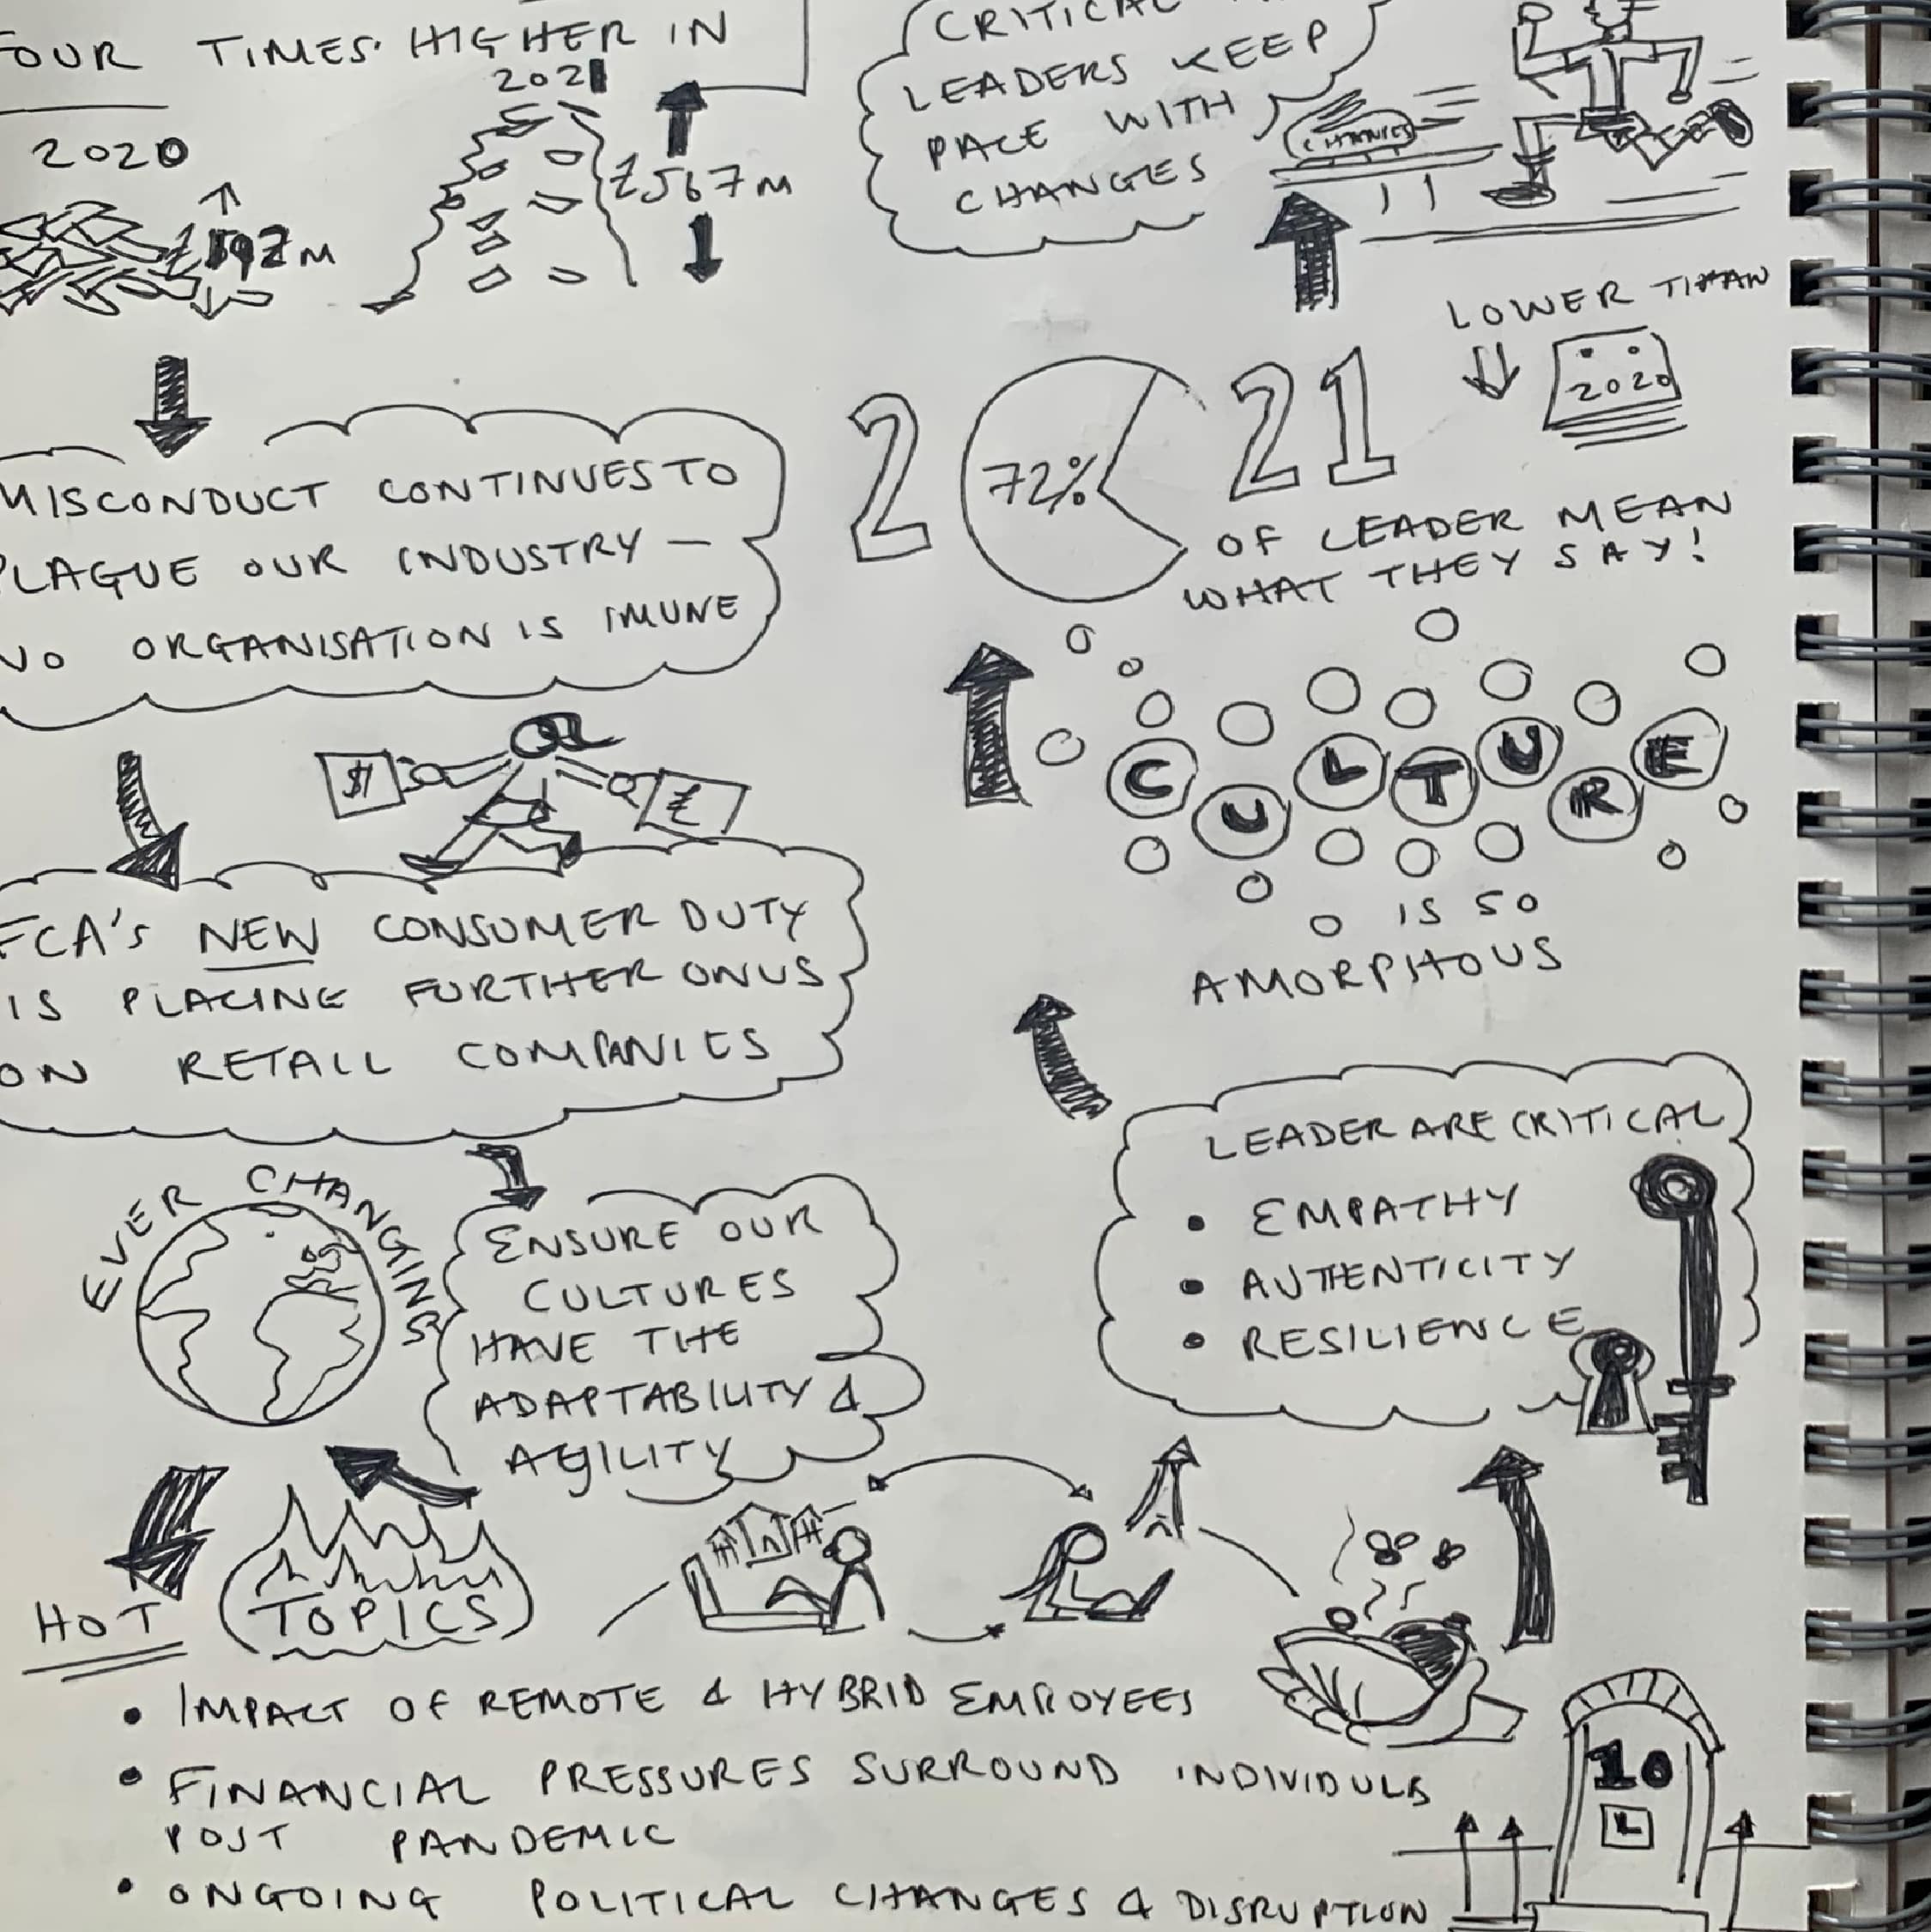 FOUR TIMES HIGHER IN
2021
2020
£567M
MISCONDUCT CONTINUES TO
PLAGUE OUR INDUSTRY —
NO ORGANISATION IS IMUNE
$
£
FCA'S NEW CONSUMER DUTY
IS PLACING FURTHER ONUS
ON RETAIL COMPANIES
EVER CHANGING
ENSURE OUR
CULTURES
HAVE THE
ADAPTABILITY &
AGILITY
HOT
TOPICS
• IMPACT OF REMOTE & HYBRID EMPLOYEES
• FINANCIAL PRESSURES SURROUND
POST PANDEMIC
• ONGOING POLITICAL CHANGES & DISRUPTION
10
LEADER ARE CRITICAL
• EMPATHY
• AUTHENTICITY
• RESILIENCE
CULTURE
IS SO
AMORPHOUS
2 72% 21
OF LEADER MEAN
WHAT THEY SAY!
LOWER THAN
2020
CRITICAL
LEADERS KEEP
PACE WITH
CHANGES
CHANGES